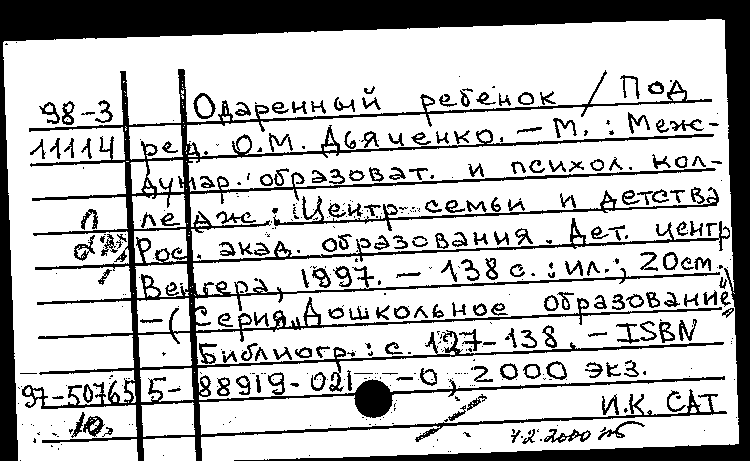 98-3 Одаренный ребенок / Под
11114 ред. О.М. Дьяченко. — М. : Меж-
дунар. образоват. и психол. кол-
ледж : Центр семьи и детства
Рос. акад. образования. Дет. центр
Венгера, 1997. — 138 с. : ил. ; 20 см.
— (Серия „Дошкольное образование"
Библиогр. : с. 127-138. — ISBN
97-50765 5-88919-021-0, 2000 экз.
10. И.К. САТ
4.2.2000